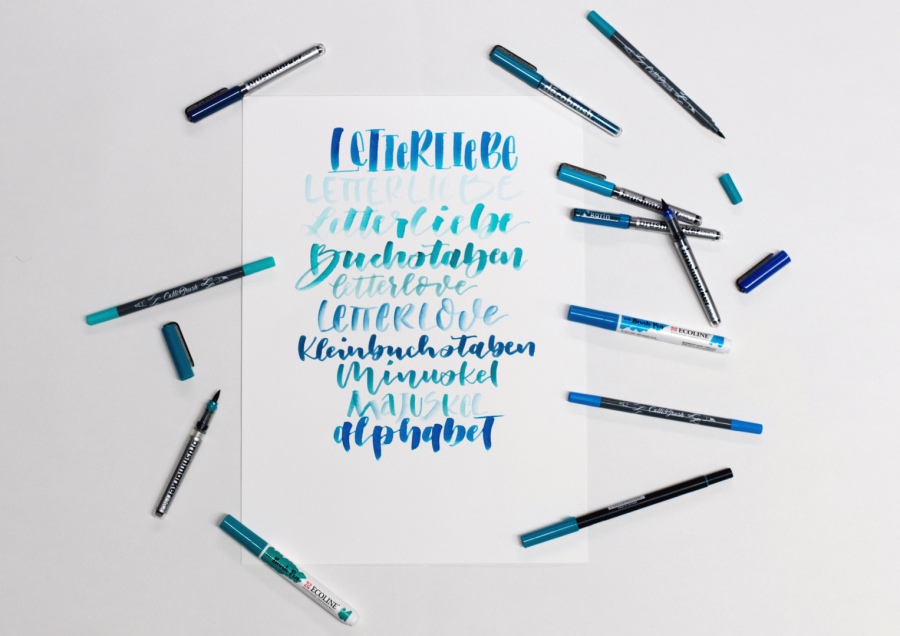 LETTeRLIeBE
LETTERLIEBE
letterliebe
Buchstaben
letterlove
LETTERLOVE
Kleinbuchstaben
Minuskel
MAJUSKEL
alphabeT
CalliBrush
decobrush
karin
Brush Pen ECOLINE
CalliBrush
CalliBrush
Brush Pen ECOLINE